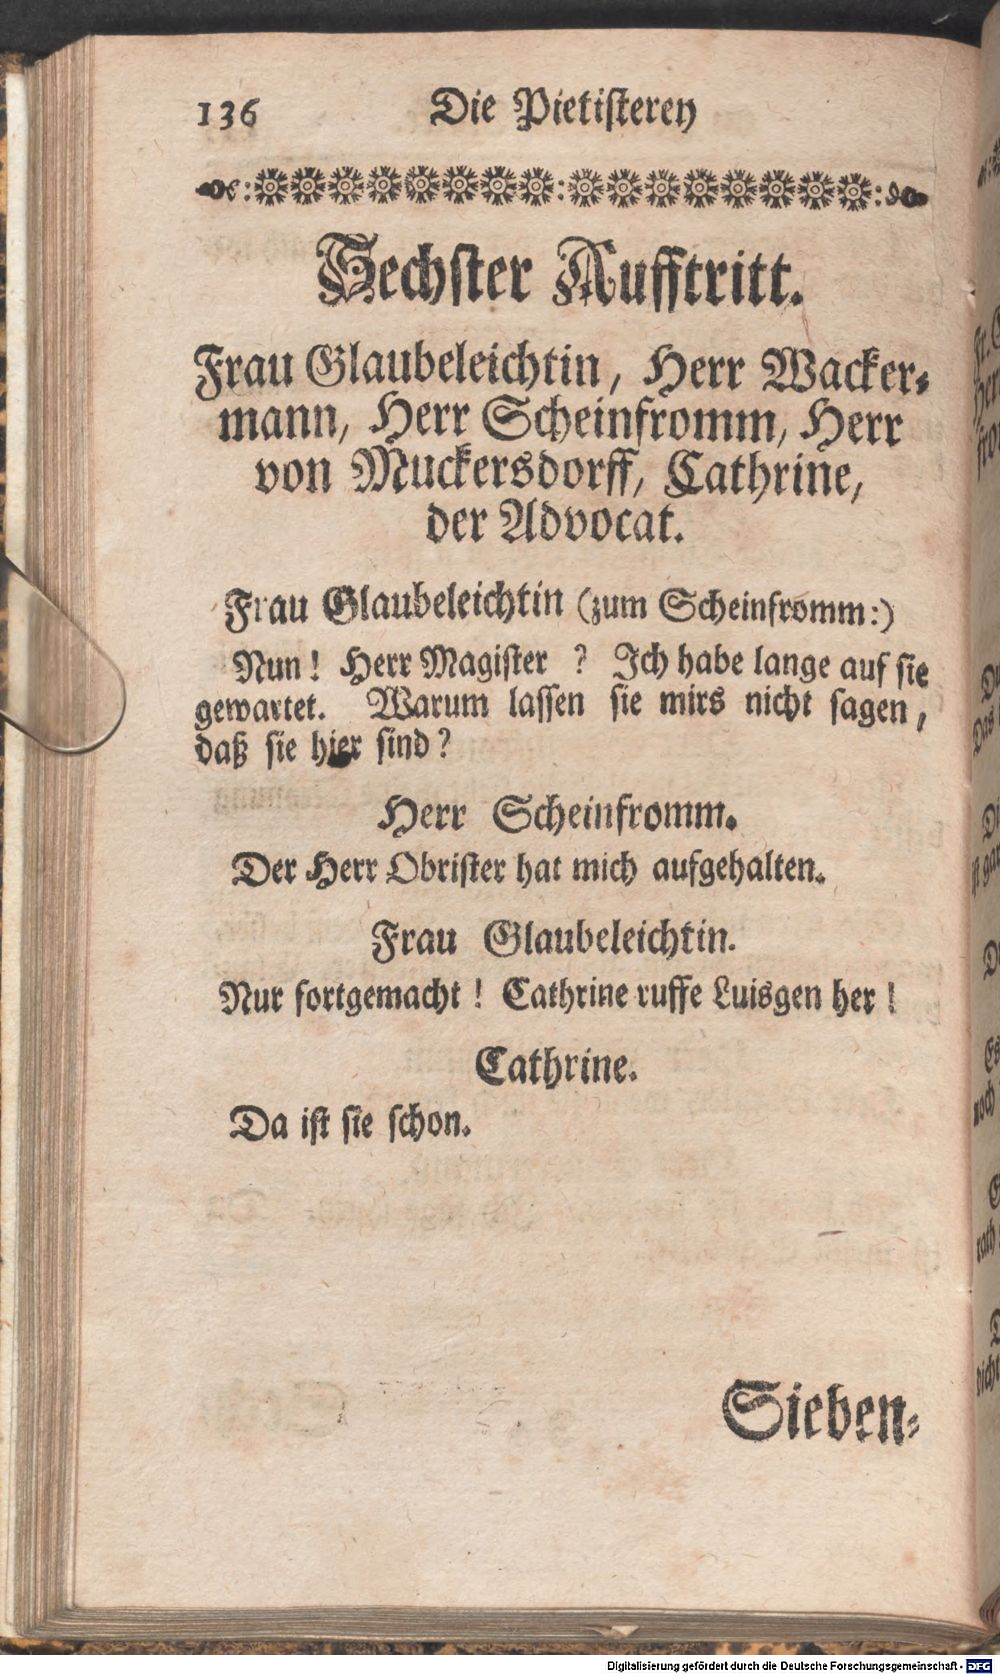 136 Die Pietisterey
Sechster Aufftritt.
Frau Glaubeleichtin, Herr Wacker-
mann, Herr Scheinfromm, Herr
von Muckersdorff, Cathrine,
der Advocat.
Frau Glaubeleichtin (zum Scheinfromm:)
Nun! Herr Magister ? Ich habe lange auf sie
gewartet. Warum lassen sie mirs nicht sagen,
daß sie hier sind?
Herr Scheinfromm.
Der Herr Obrister hat mich aufgehalten.
Frau Glaubeleichtin.
Nur fortgemacht! Cathrine ruffe Luisgen her!
Cathrine.
Da ist sie schon.
Sieben-
Digitalisierung gefördert durch die Deutsche Forschungsgemeinschaft - DFG